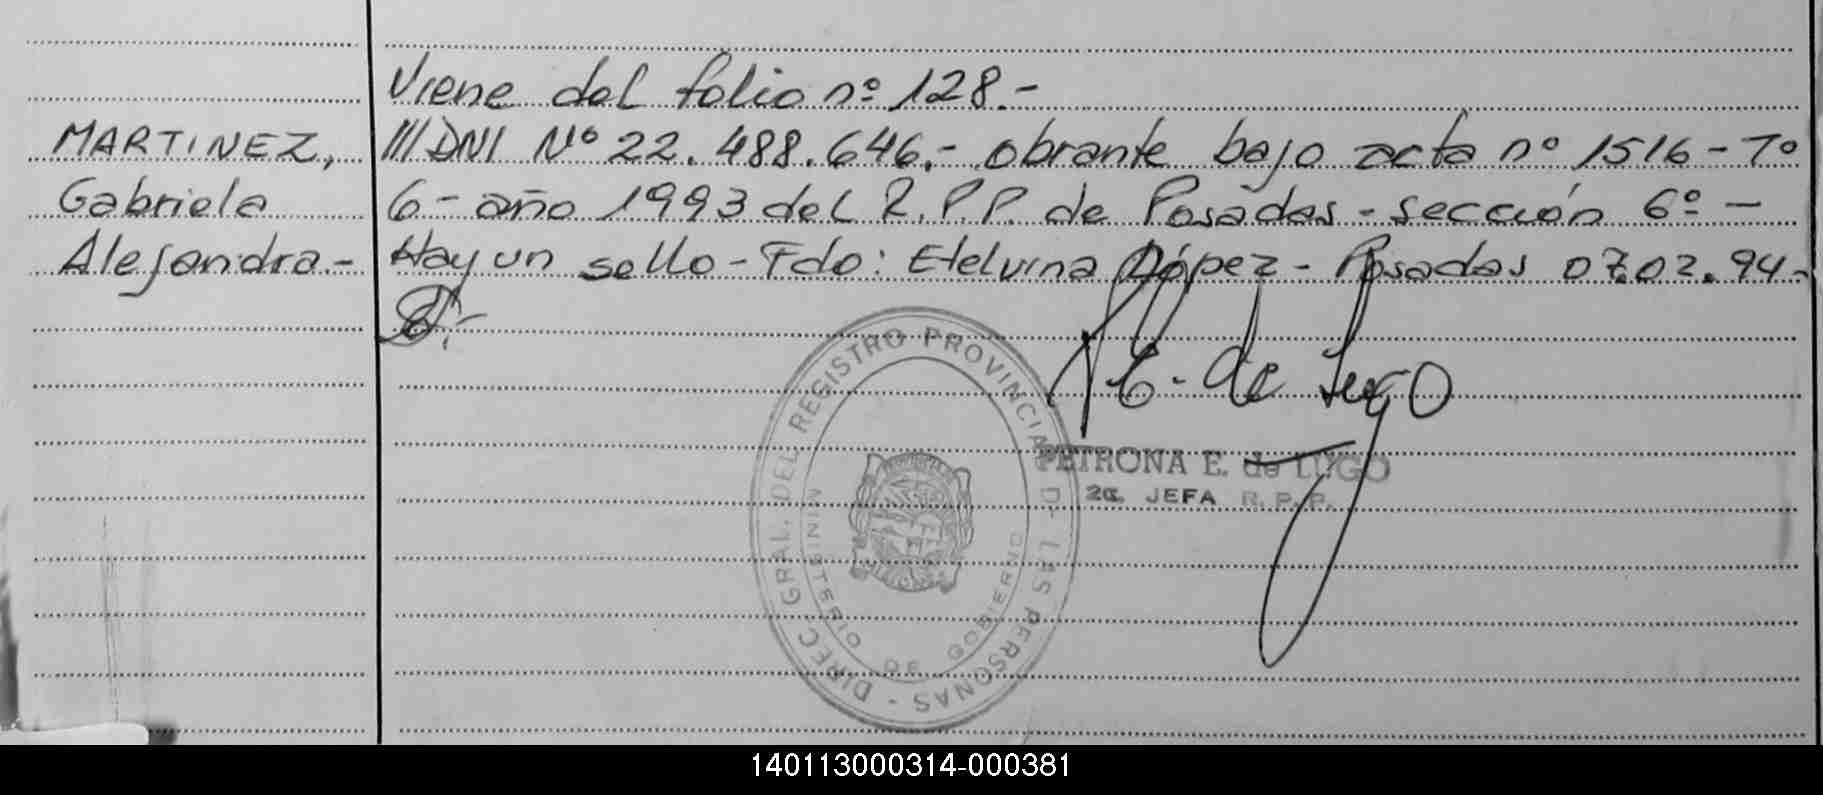 Viene del folio nº 128.-
MARTINEZ,
Gabriela
Alejandra.-
///DNI Nº 22.488.646.- obrante bajo acta nº 1516 - Tº
6 - año 1993 del R.P.P. de Posadas - sección 6º -
Hay un sello - Fdo: Etelvina López - Posadas 07.02.94.-
E. de Lugo
PETRONA E. de LUGO
2a. JEFA R.P.P.
DIREC. GRAL. DEL REGISTRO PROVINCIAL D- LAS PERSONAS -
MINISTERIO DE GOBIERNO
140113000314-000381